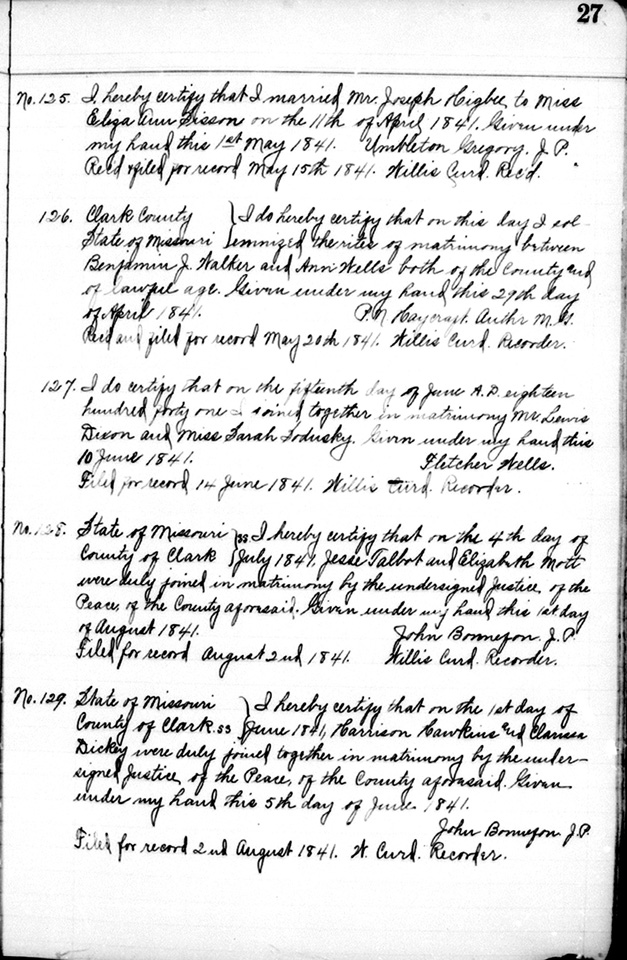 27
No. 125. I hereby certify that I married Mr. Joseph Higbee to Miss
Eliza Ann Sisson on the 11th of April 1841. Given under
my hand this 1st May 1841. Umbleton Gregory. J. P.
Rec'd & filed for record May 15th 1841. Willis Curd. Rec'd.
126. Clark County } I do hereby certify that on this day I sol-
State of Missouri } emnized the rites of matrimony between
Benjamin J. Walker and Ann Wells both of the County and
of lawful age. Given under my hand this 29th day
of April 1841. P. N Haycraft. Authr M. G.
Recd and filed for record May 20th 1841. Willis Curd. Recorder.
127. I do certify that on the fifteenth day of June A.D. eighteen
hundred forty one I joined together in matrimony Mr. Lewis
Dixon and Miss Sarah Sodusky. Givin under my hand this
10 June 1841. Fletcher Wells.
Filed for record 14 June 1841. Willis Curd. Recorder.
No. 128. State of Missouri } ss I hereby certify that on the 4th day of
County of Clark } July 1841, Jesse Talbot and Elizabeth Mott
were duly joined in matrimony by the undersigned Justice, of the
Peace, of the County aforesaid. Given under my hand this 1st day
of August 1841. John Bonnefon. J. P.
Filed for record August 2nd 1841. Willis Curd. Recorder.
No. 129. State of Missouri } I hereby certify that on the 1st day of
County of Clark. ss } June 1841, Harrison Hawkins and Clarissa
Dickey were duly joined together in matrimony by the under-
signed Justice, of the Peace, of the County aforesaid. Given
under my hand this 5th day of June 1841.
John Bonnefon J. P.
Filed for record 2nd August 1841. W. Curd. Recorder.